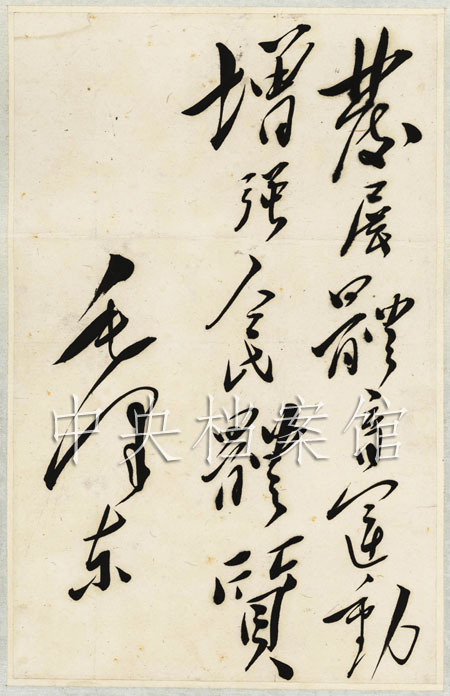 發展體育運動
增强人民體質
毛泽东
中央档案馆